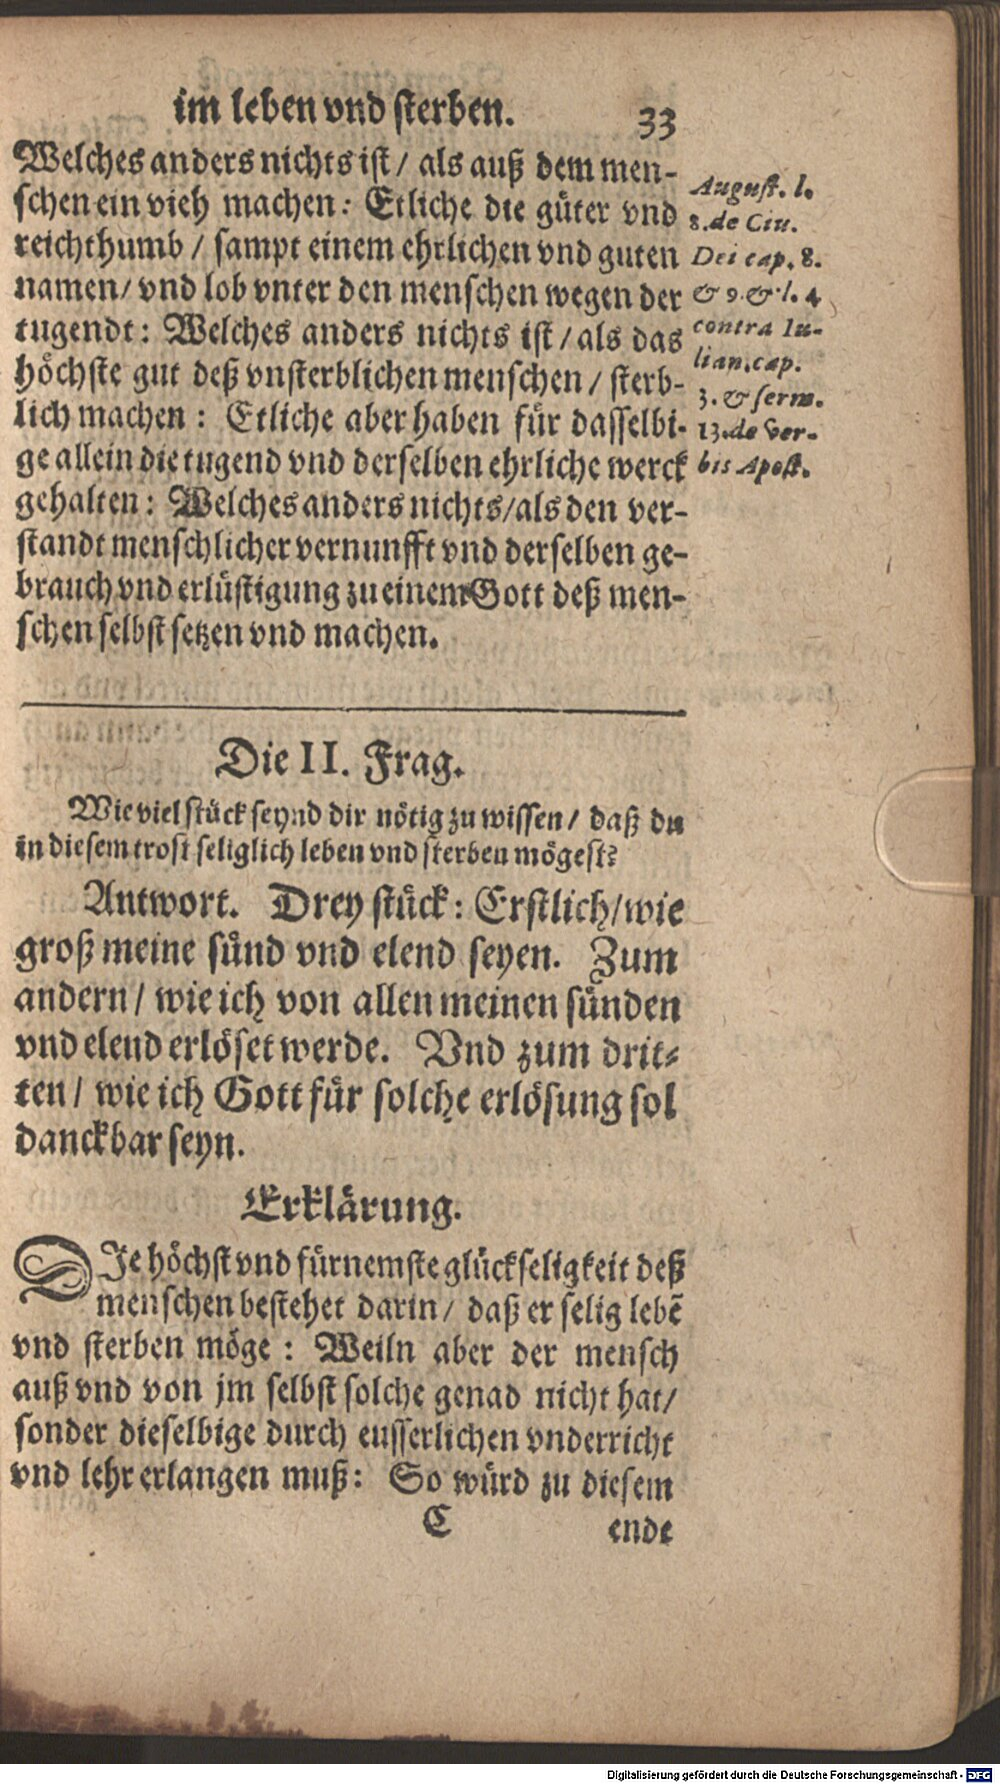 im leben vnd sterben. 33
Welches anders nichts ist / als auß dem men-
schen ein vieh machen: Etliche die güter vnd
reichthumb / sampt einem ehrlichen vnd guten
namen / vnd lob vnter den menschen wegen der
tugendt: Welches anders nichts ist / als das
höchste gut deß vnsterblichen menschen / sterb-
lich machen: Etliche aber haben für dasselbi-
ge allein die tugend vnd derselben ehrliche werck
gehalten: Welches anders nichts / als den ver-
standt menschlicher vernunfft vnd derselben ge-
brauch vnd erlüstigung zu einem Gott deß men-
schen selbst setzen vnd machen.
August. l.
8. de Ciu.
Dei cap. 8.
& 9. & l. 4
contra Iu-
lian. cap.
3. & serm.
13. de Ver-
bis Apost.
Die II. Frag.
Wie viel stück seynd dir nötig zu wissen / daß du
in diesem trost seliglich leben vnd sterben mögest?
Antwort. Drey stück: Erstlich / wie
groß meine sünd vnd elend seyen. Zum
andern / wie ich von allen meinen sünden
vnd elend erlöset werde. Vnd zum drit-
ten / wie ich Gott für solche erlösung sol
danckbar seyn.
Erklärung.
DIe höchst vnd fürnemste glückseligkeit deß
menschen bestehet darin / daß er selig lebē
vnd sterben möge: Weiln aber der mensch
auß vnd von jm selbst solche genad nicht hat /
sonder dieselbige durch eusserlichen vnderricht
vnd lehr erlangen muß: So würd zu diesem
C ende
Digitalisierung gefördert durch die Deutsche Forschungsgemeinschaft - DFG